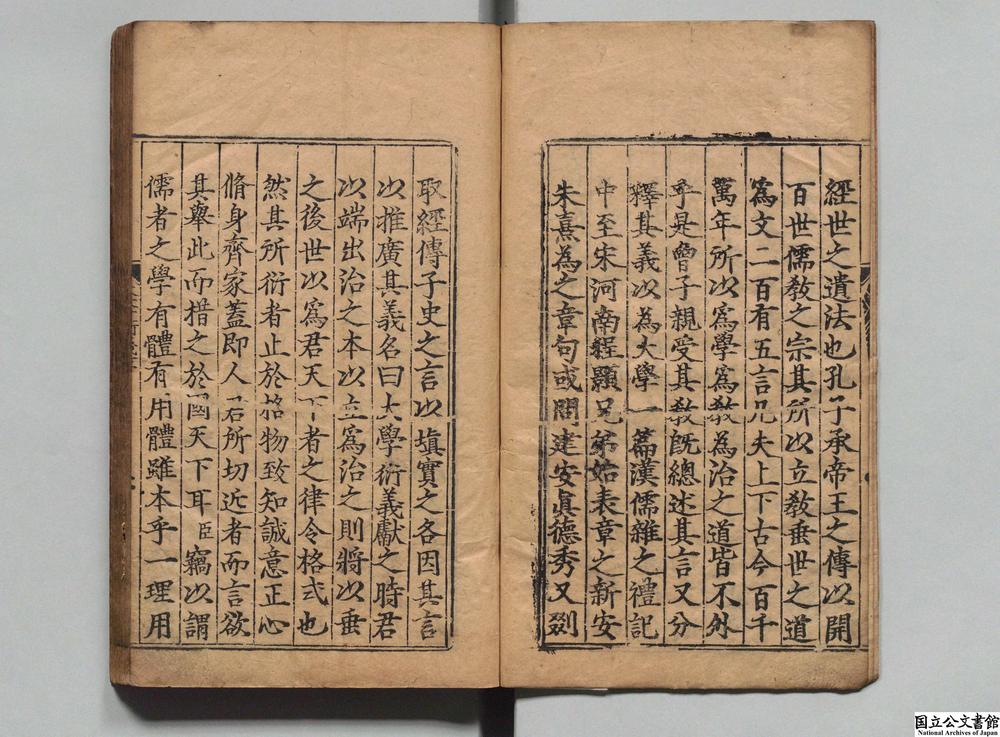 經世之遺法也孔子承帝王之傳以開
百世儒敎之宗其所以立敎垂世之道
爲文二百有五言凡夫上下古今百千
萬年所以爲學爲敎為治之道皆不外
乎是曾子親受其敎旣總述其言又分
釋其義以為大學一篇漢儒雜之禮記
中至宋河南程顥兄弟始表章之新安
朱熹為之章句或問建安眞德秀又剟
取經傳子史之言以塡實之各因其言
以推廣其義名曰大學衍義獻之時君
以端出治之本以立爲治之則將以垂
之後世以爲君天下者之律令格式也
然其所衍者止於格物致知誠意正心
脩身齊家蓋即人君所切近者而言欲
其舉此而措之於國天下耳臣竊以謂
儒者之學有體有用體雖本乎一理用
国立公文書館
National Archives of Japan